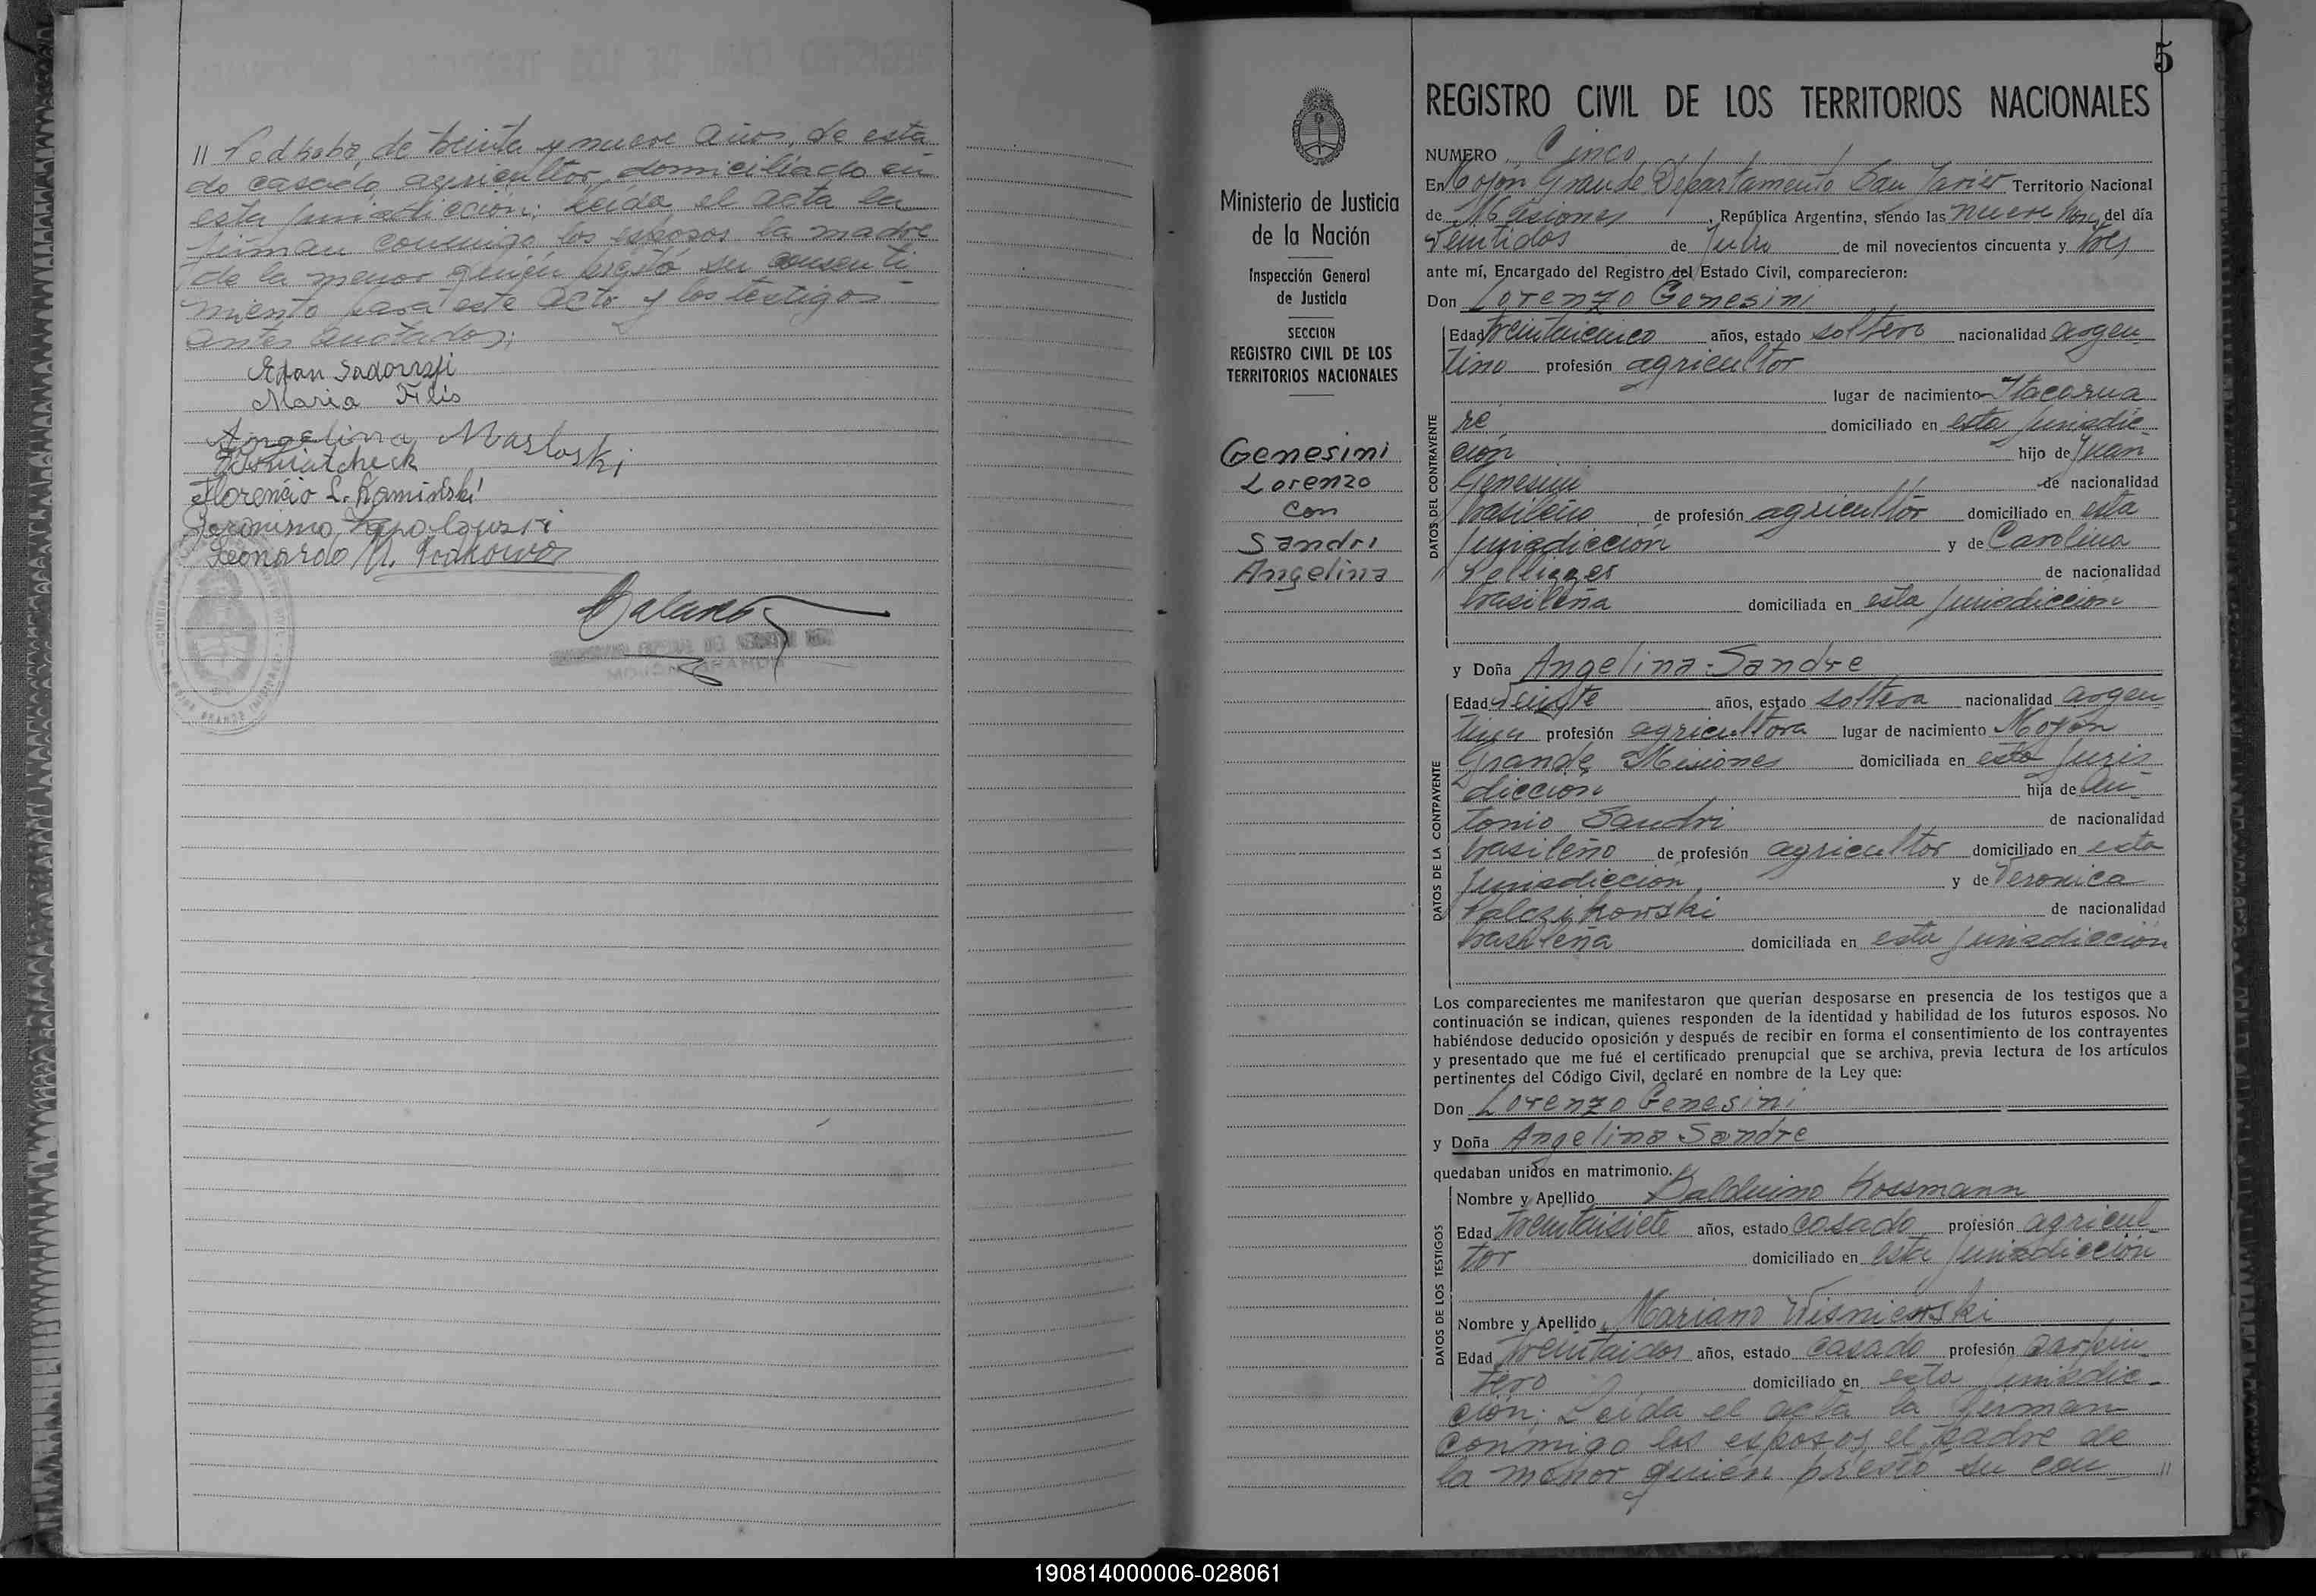 // Podkobo, de treinta y nueve años, de esta
do casado agricultor, domiciliado en
esta jurisdiccion; Leida el acta la
firman conmigo los esposos la madre
de la menor quién prestó su consenti
miento para este acto y los testigos
antes anotados;
Maria Filis
Angelina Masloski
Florencio L. Kaminski
Geronimo
Leonardo
5
REGISTRO CIVIL DE LOS TERRITORIOS NACIONALES
Ministerio de Justicia
de la Nación
Inspección General
de Justicia
SECCION
REGISTRO CIVIL DE LOS
TERRITORIOS NACIONALES
Genesini
Lorenzo
Con
Sandri
Angelina
NUMERO Cinco
En Mojón Grande Departamento San Javier Territorio Nacional
de Misiones, República Argentina, siendo las nueve horas del día
veintidos de Julio de mil novecientos cincuenta y tres
ante mí, Encargado del Registro del Estado Civil, comparecieron:
Don Lorenzo Genesini
DATOS DEL CONTRAYENTE
Edad treintaicinco años, estado soltero nacionalidad argen
tino profesión agricultor
lugar de nacimiento Itacarua
ré domiciliado en esta jurisdic
ción hijo de Juan
Genesini de nacionalidad
brasileño de profesión agricultor domiciliado en esta
jurisdiccion y de Carolina
de nacionalidad
brasileña domiciliada en esta jurisdiccion
y Doña Angelina Sandre
DATOS DE LA CONTRAYENTE
Edad veinte años, estado soltera nacionalidad argen
tina profesión agricultora lugar de nacimiento Mojón
Grande Misiones domiciliada en esta juris
diccion hija de An
tonio Sandri de nacionalidad
brasileño de profesión agricultor domiciliado en esta
jurisdiccion y de Veronica
Palczikowski de nacionalidad
brasileña domiciliada en esta jurisdicción
Los comparecientes me manifestaron que querían desposarse en presencia de los testigos que a
continuación se indican, quienes responden de la identidad y habilidad de los futuros esposos. No
habiéndose deducido oposición y después de recibir en forma el consentimiento de los contrayentes
y presentado que me fué el certificado prenupcial que se archiva, previa lectura de los artículos
pertinentes del Código Civil, declaré en nombre de la Ley que:
Don Lorenzo Genesini
y Doña Angelina Sandre
quedaban unidos en matrimonio.
DATOS DE LOS TESTIGOS
Nombre y Apellido Balduino Kossmann
Edad treintaisiete años, estado casado profesión agricul
tor domiciliado en esta jurisdicción
Nombre y Apellido Mariano Wisniewski
Edad treintaidos años, estado casado profesión carpin
tero domiciliado en esta jurisdic-
ción; Leida el acta la firman
conmigo los esposos, el padre de
la menor quién prestó su con //
190814000006-028061